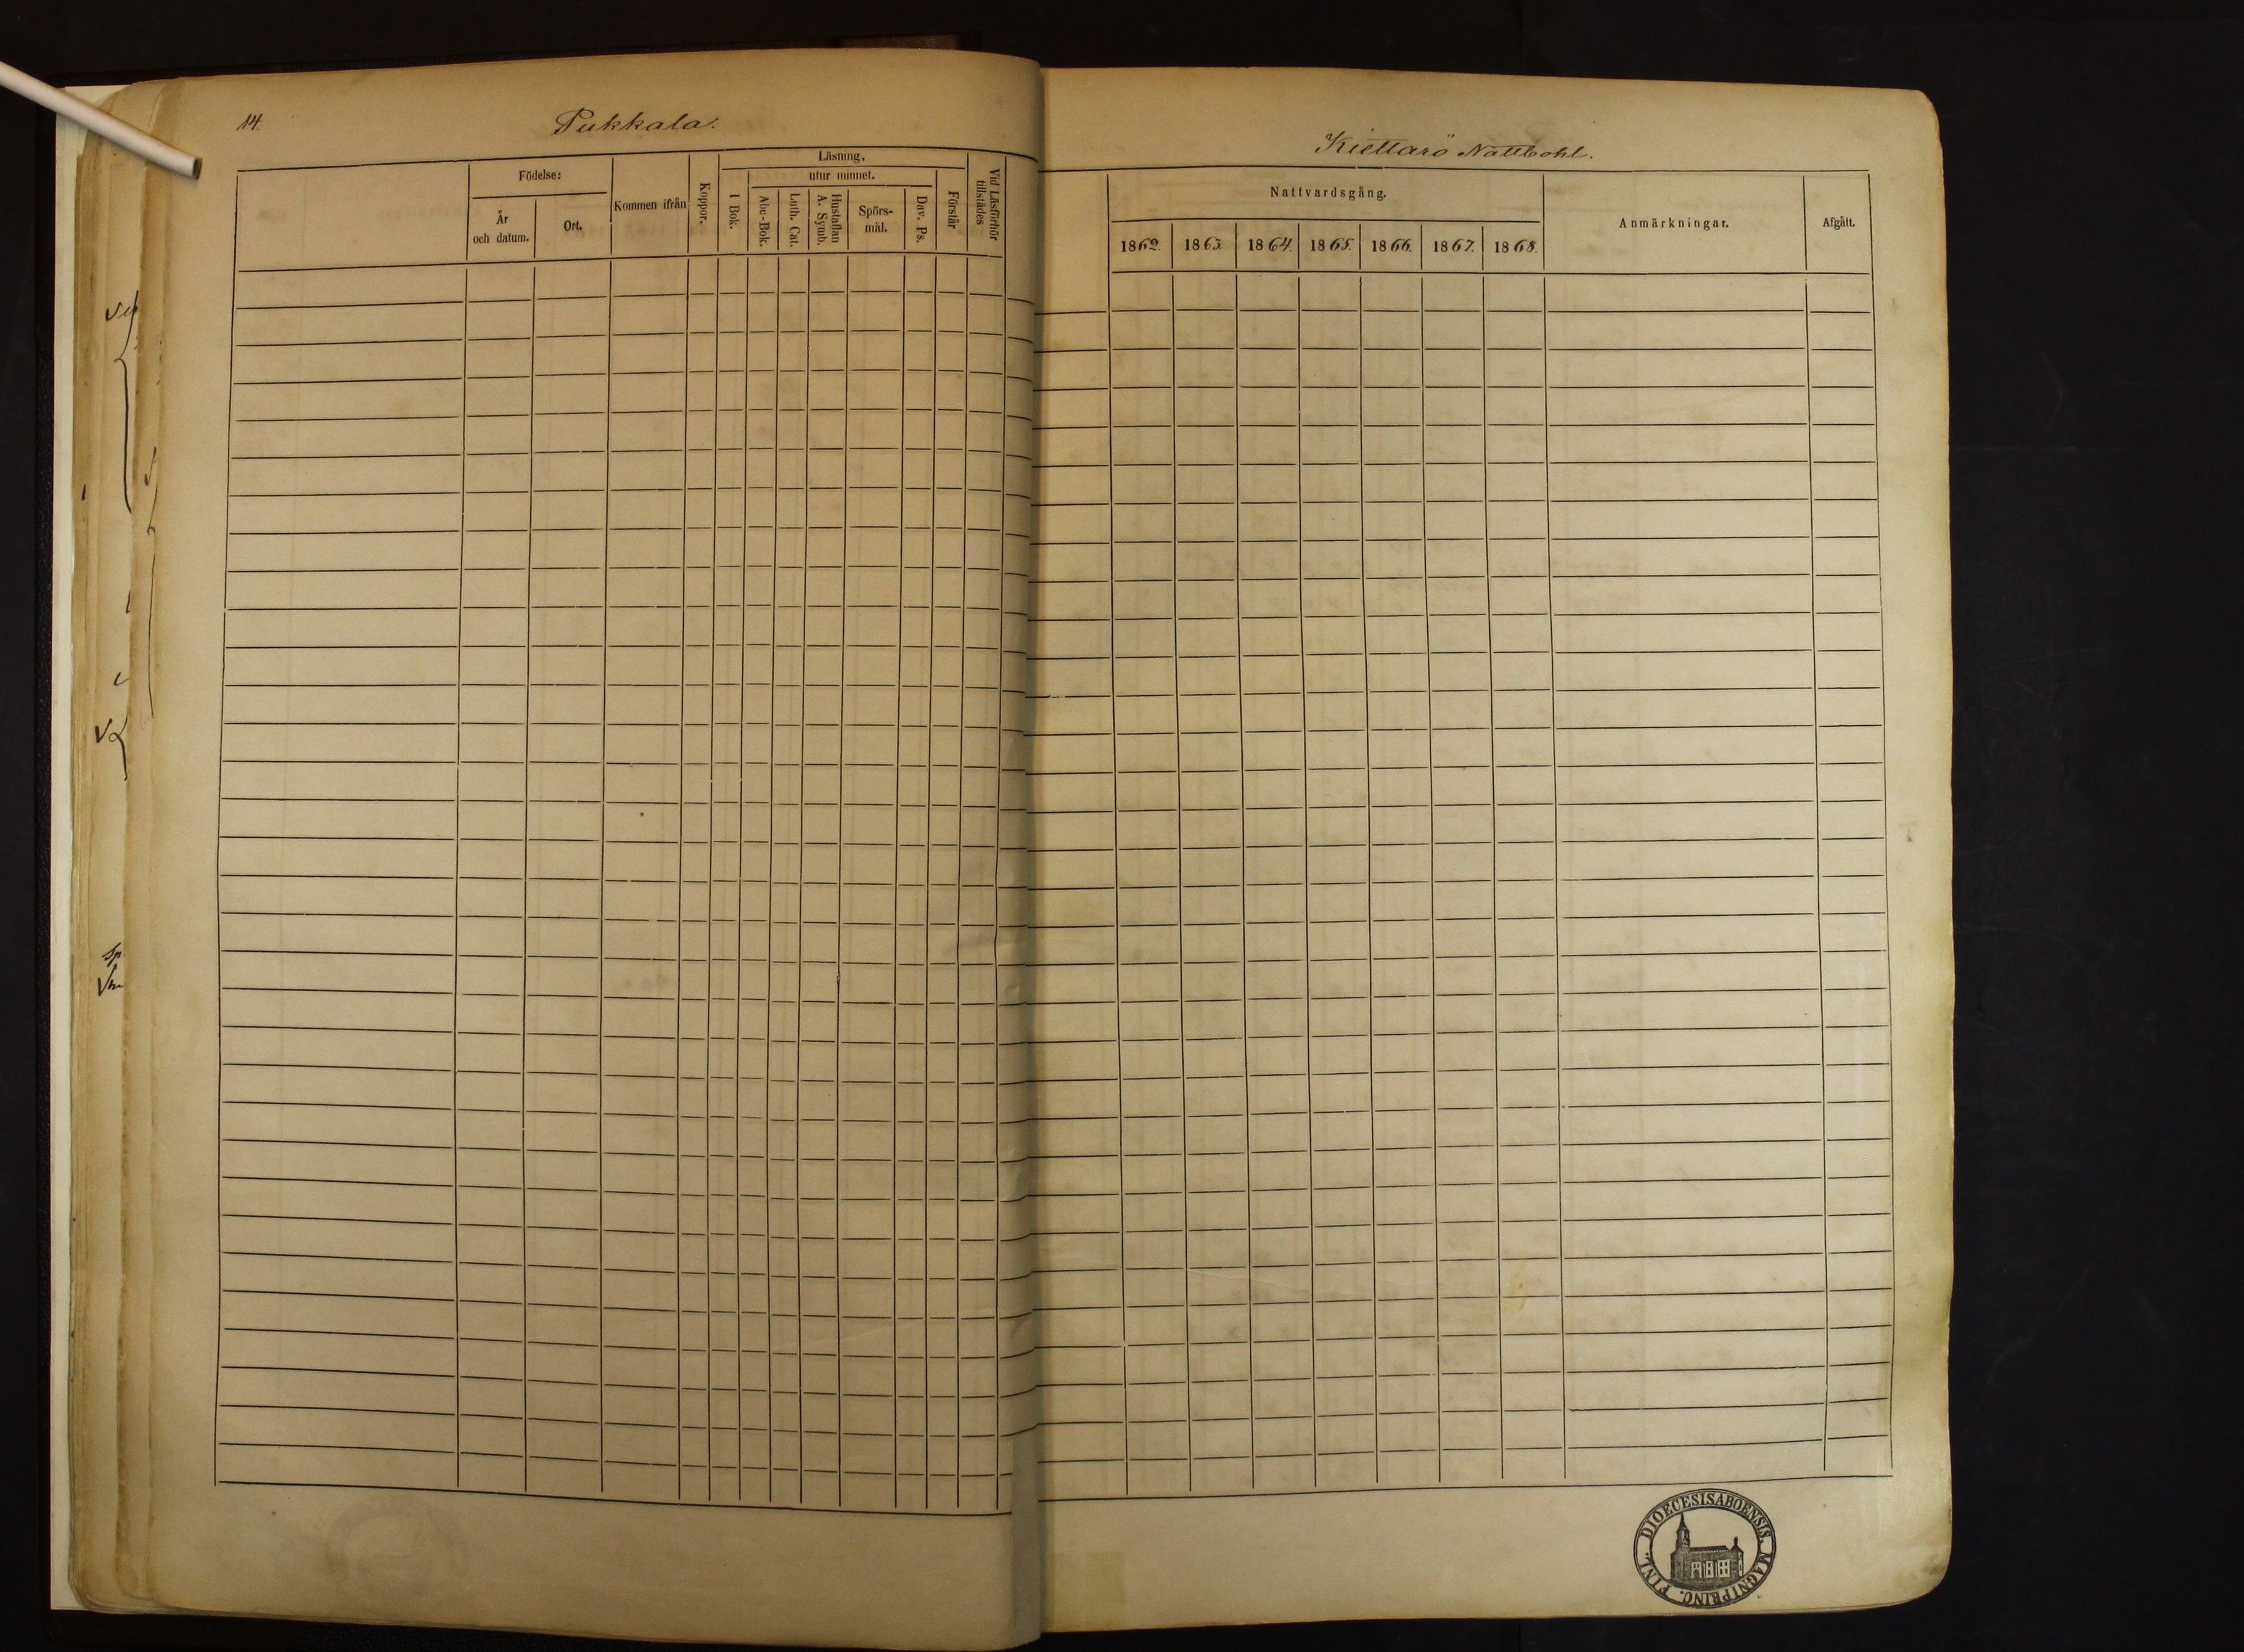 14.
Pukkala.
Födelse:
År och datum.
Ort.
Kommen ifrån
Koppor.
Läsning,
I Bok.
utur minnet.
Abc-Bok.
Luth. Cat.
Hustaflan A. Symb.
Spörs-
mål.
Dav. Ps.
Förstår
Vid Läsförhör tillstädes
Kiettarö Nattbohl.
Nattvardsgång.
1862. 1863. 1864. 1865. 1866. 1867. 1868.
Anmärkningar.
Afgått.
DIOECESIS ABOENSIS. MAGNI PRINC. FINL.